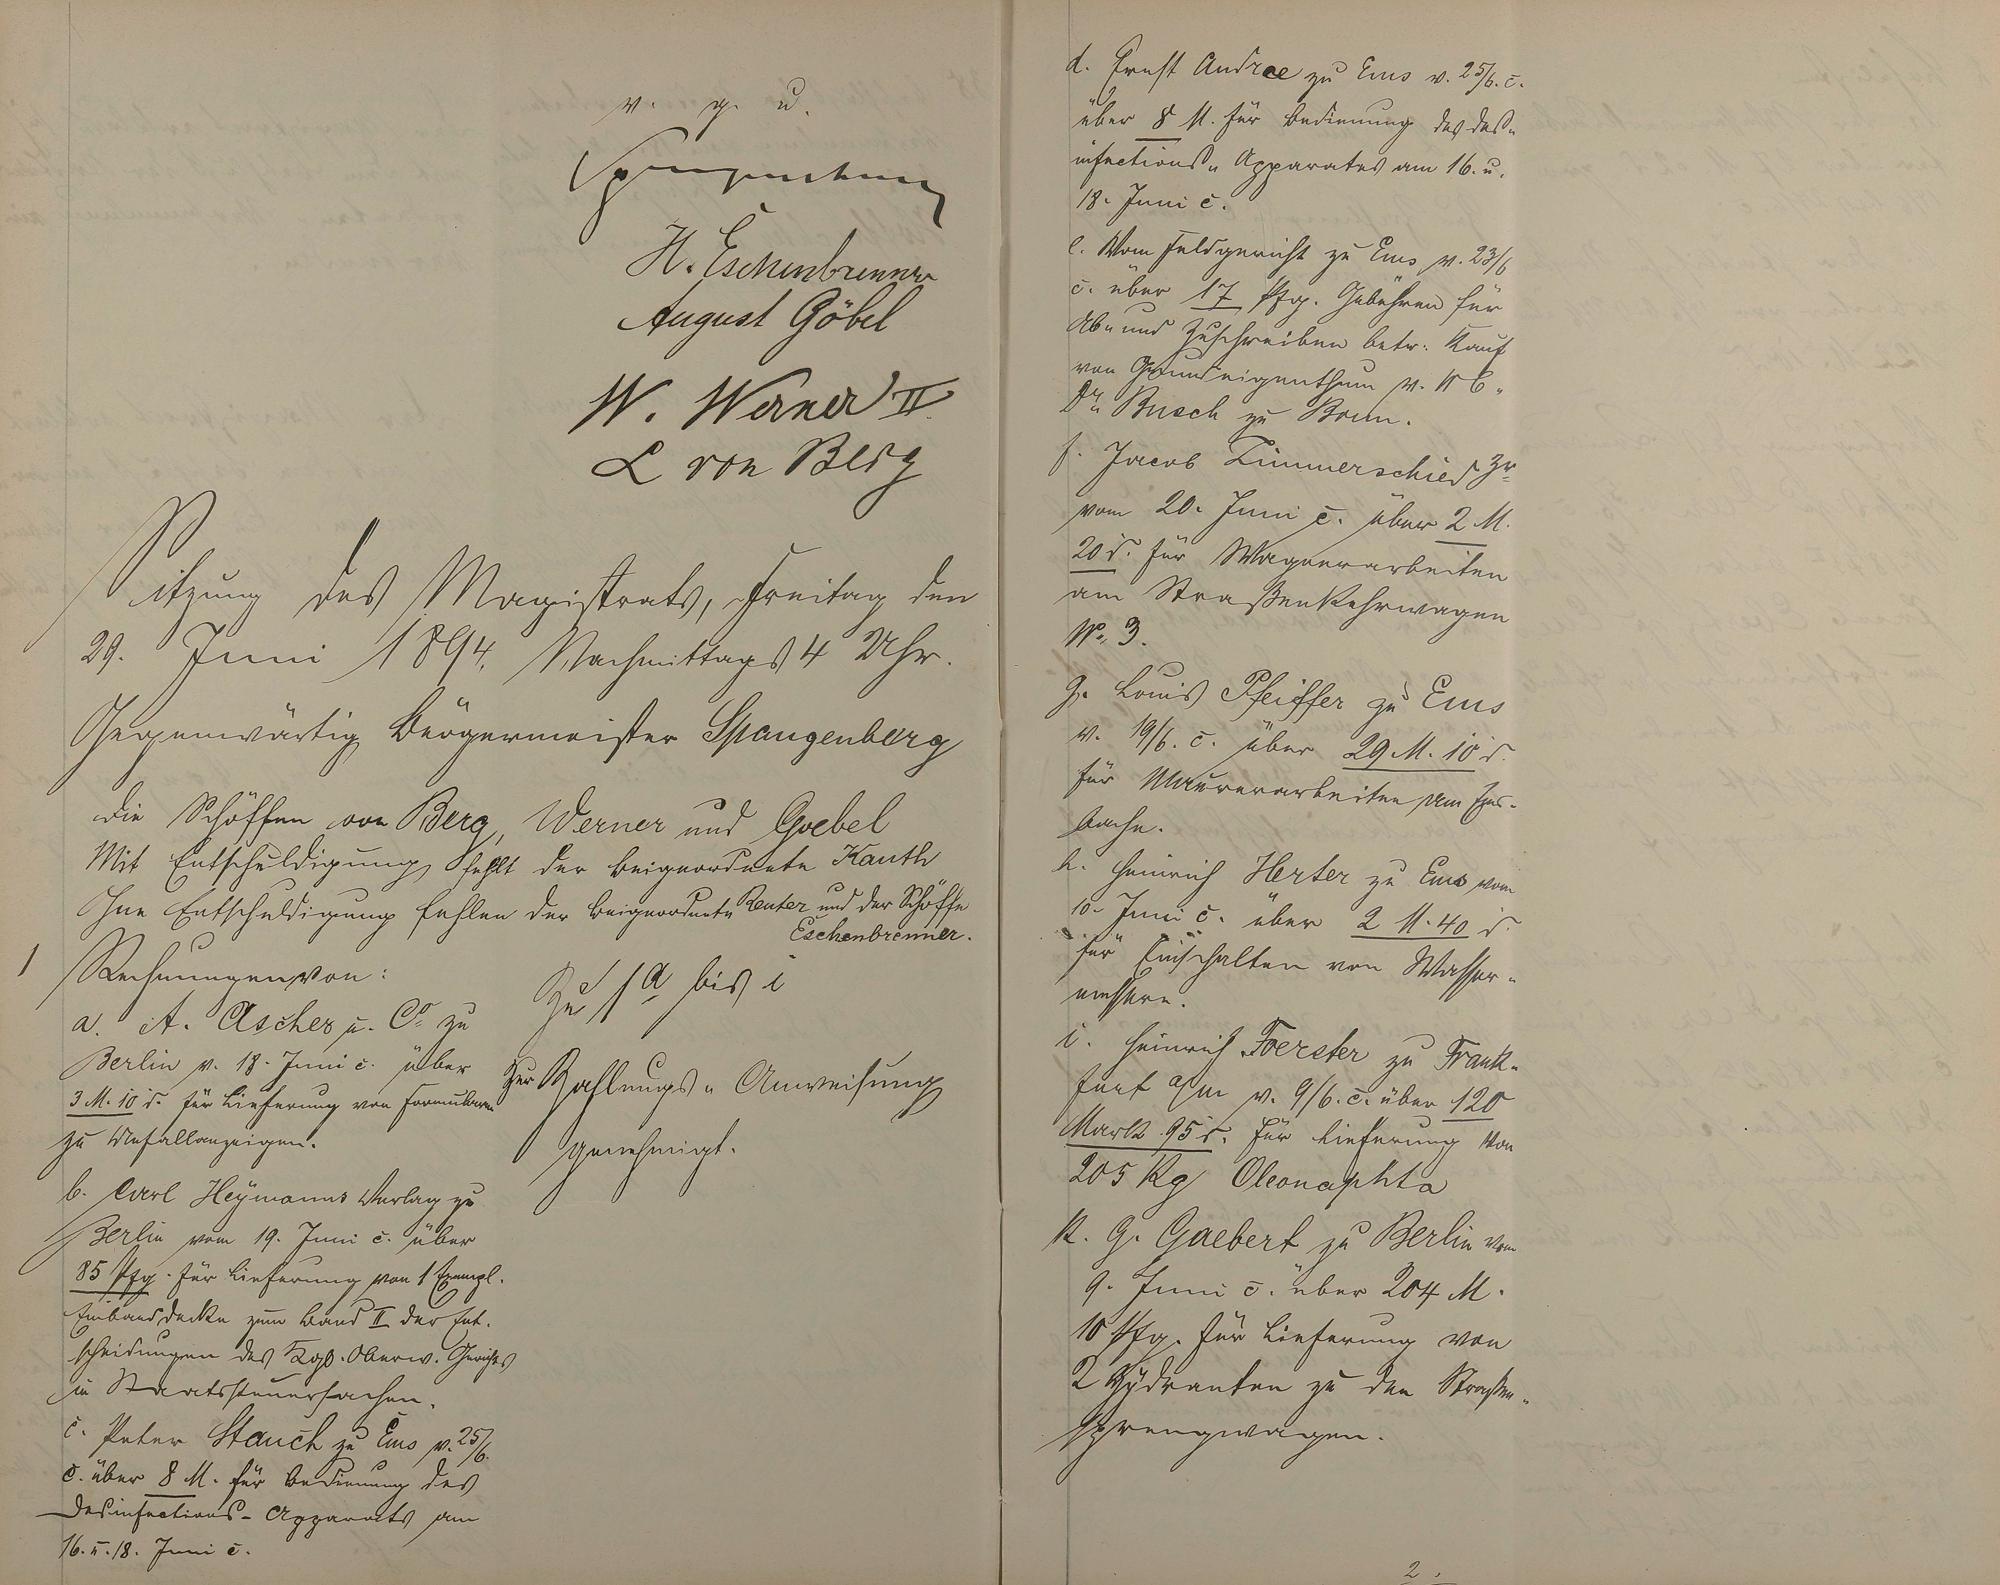 v. g. u.
Spangenberg
H. Eschenbrenner
August Göbel
W. Werner II
L von Berg
Sitzung des Magistrats, Freitag den
29. Juni 1894, Nachmittags 4 Uhr.
Gegenwärtig Bürgermeister Spangenberg
die Schöffen von Berg, Werner und Goebel
Mit Entschuldigung fehlt der Beigeordnete Kauth
Ohne Entschuldigung fehlen der Beigeordnete Reuter und der Schöffe
Eschenbrenner.
1 Rechnungen von:
a. A. Ascher u. Co zu
Berlin v. 18. Juni c. über
3 M. 10 d. für Lieferung von Formularen
zu Unfallanzeigen.
b. Carl Heymanns Verlag zu
Berlin vom 19. Juni c. über
85 Pfg. für Lieferung von 1 Exempl.
Einbanddecke zum Band II der Ent-
scheidungen des Kgl. Oberw. Gerichts
in Staatssteuersachen.
c. Peter Stauch zu Ems v. 25/6.
c. über 8 M. für Bedienung des
Desinfections-Apparats am
16. u. 18. Juni c.
Zu 1 a bis i
Zur Zahlungs-Anweisung
genehmigt.
d. Ernst Andrae zu Ems v. 25/6. c.
über 8 M. für Bedienung des Des-
infections-Apparates am 16. u.
18. Juni c.
e. Vom Feldgericht zu Ems v. 23/6
c. über 17 Pfg. Gebühren für
Ab- und Zuschreiben betr. Kauf
von Grundeigenthum v.
Dr. Busch zu Bonn.
f. Jacob Zimmerschied
vom 20. Juni c. über 2 M.
20 d. für Wagnerarbeiten
am Straßenkehrwagen
No. 3.
g. Louis Pfeiffer zu Ems
v. 19/6. c. über 29 M. 10 d.
für Maurerarbeiten am Ems-
bache.
h. Heinrich Herter zu Ems vom
10. Juni c. über 2 M. 40 d.
für Einschalten von Wasser-
messern.
i. Heinrich Foerster zu Frank-
furt a/m v. 9/6. c. über 120
Mark 95 d. für Lieferung von
205 Kg Oleonaphta
k. G. Gaebert zu Berlin vom
9. Juni c. über 204 M.
10 Pfg. für Lieferung von
2 Hydranten zu den Straßen-
sprengwagen.
2.